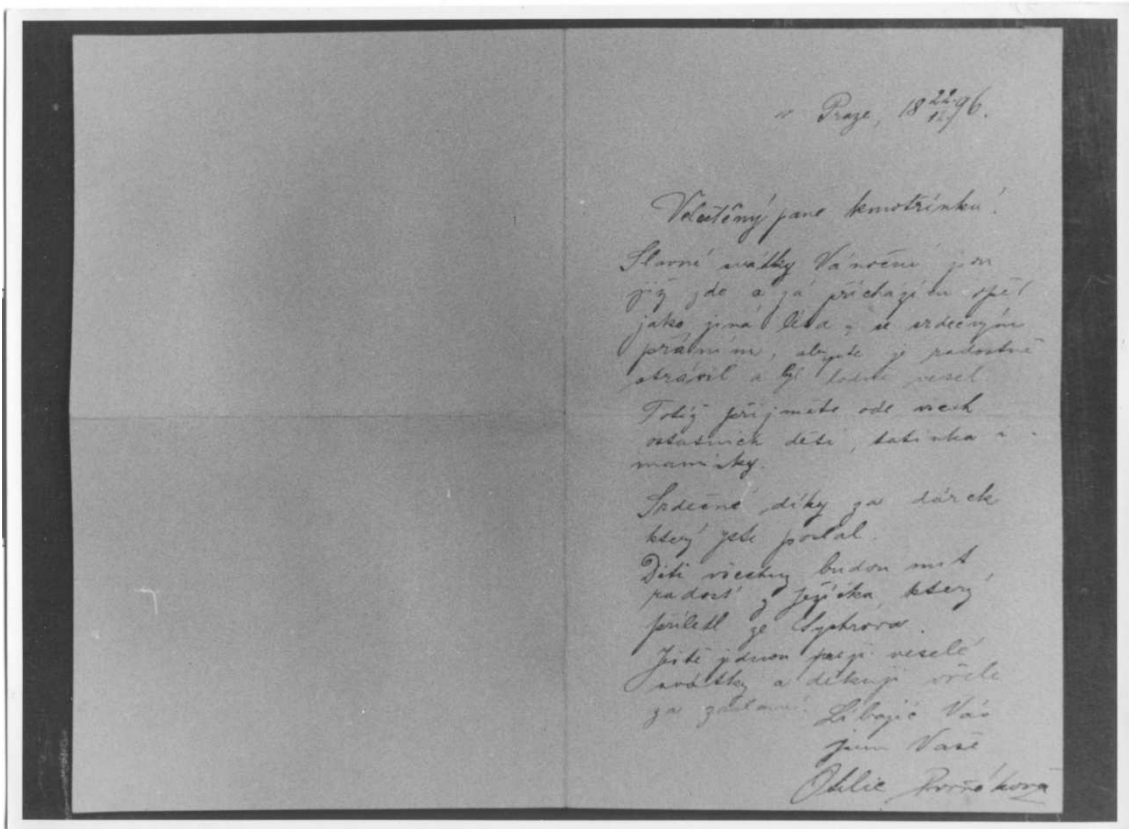 v Praze, 18 22/12 96.
Velectěný pane kmotřínku!
Slavné svátky Vánoční jsou
již zde a já přicházím opět
jako jiná léta se srdečným
přáním, abyste je radostně
strávil a byl hodně vesel
Totéž přijměte ode všech
ostatních dětí, tatínka a
maminky.
Srdečné díky za dárek
který jste poslal.
Děti všechny budou mít
radost z ježíška který
přiletl ze Sychrova.
Ještě jednou přeji veselé
svátky a děkuji vřele
za zaslání. Líbajíc Vás
jsem Vaše
Otilie Dvořáková